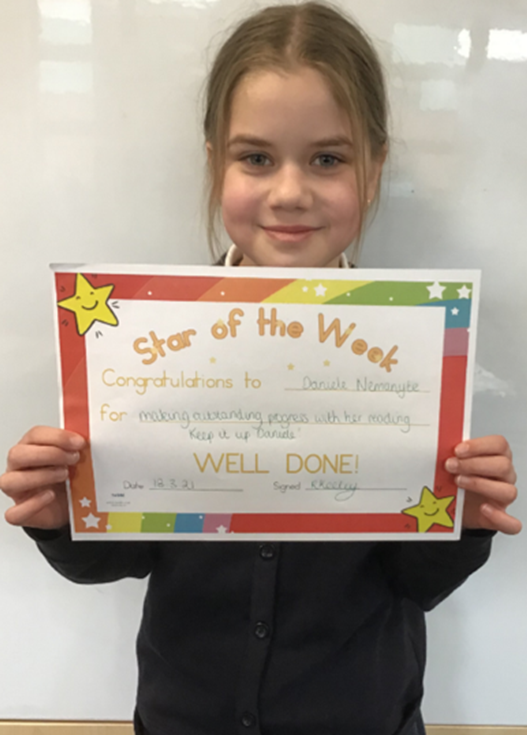 Star of the Week
Congratulations to Daniele Nemanyte
for making outstanding progress with her reading
Keep it up Daniele!
WELL DONE!
Date 12.3.21 Signed